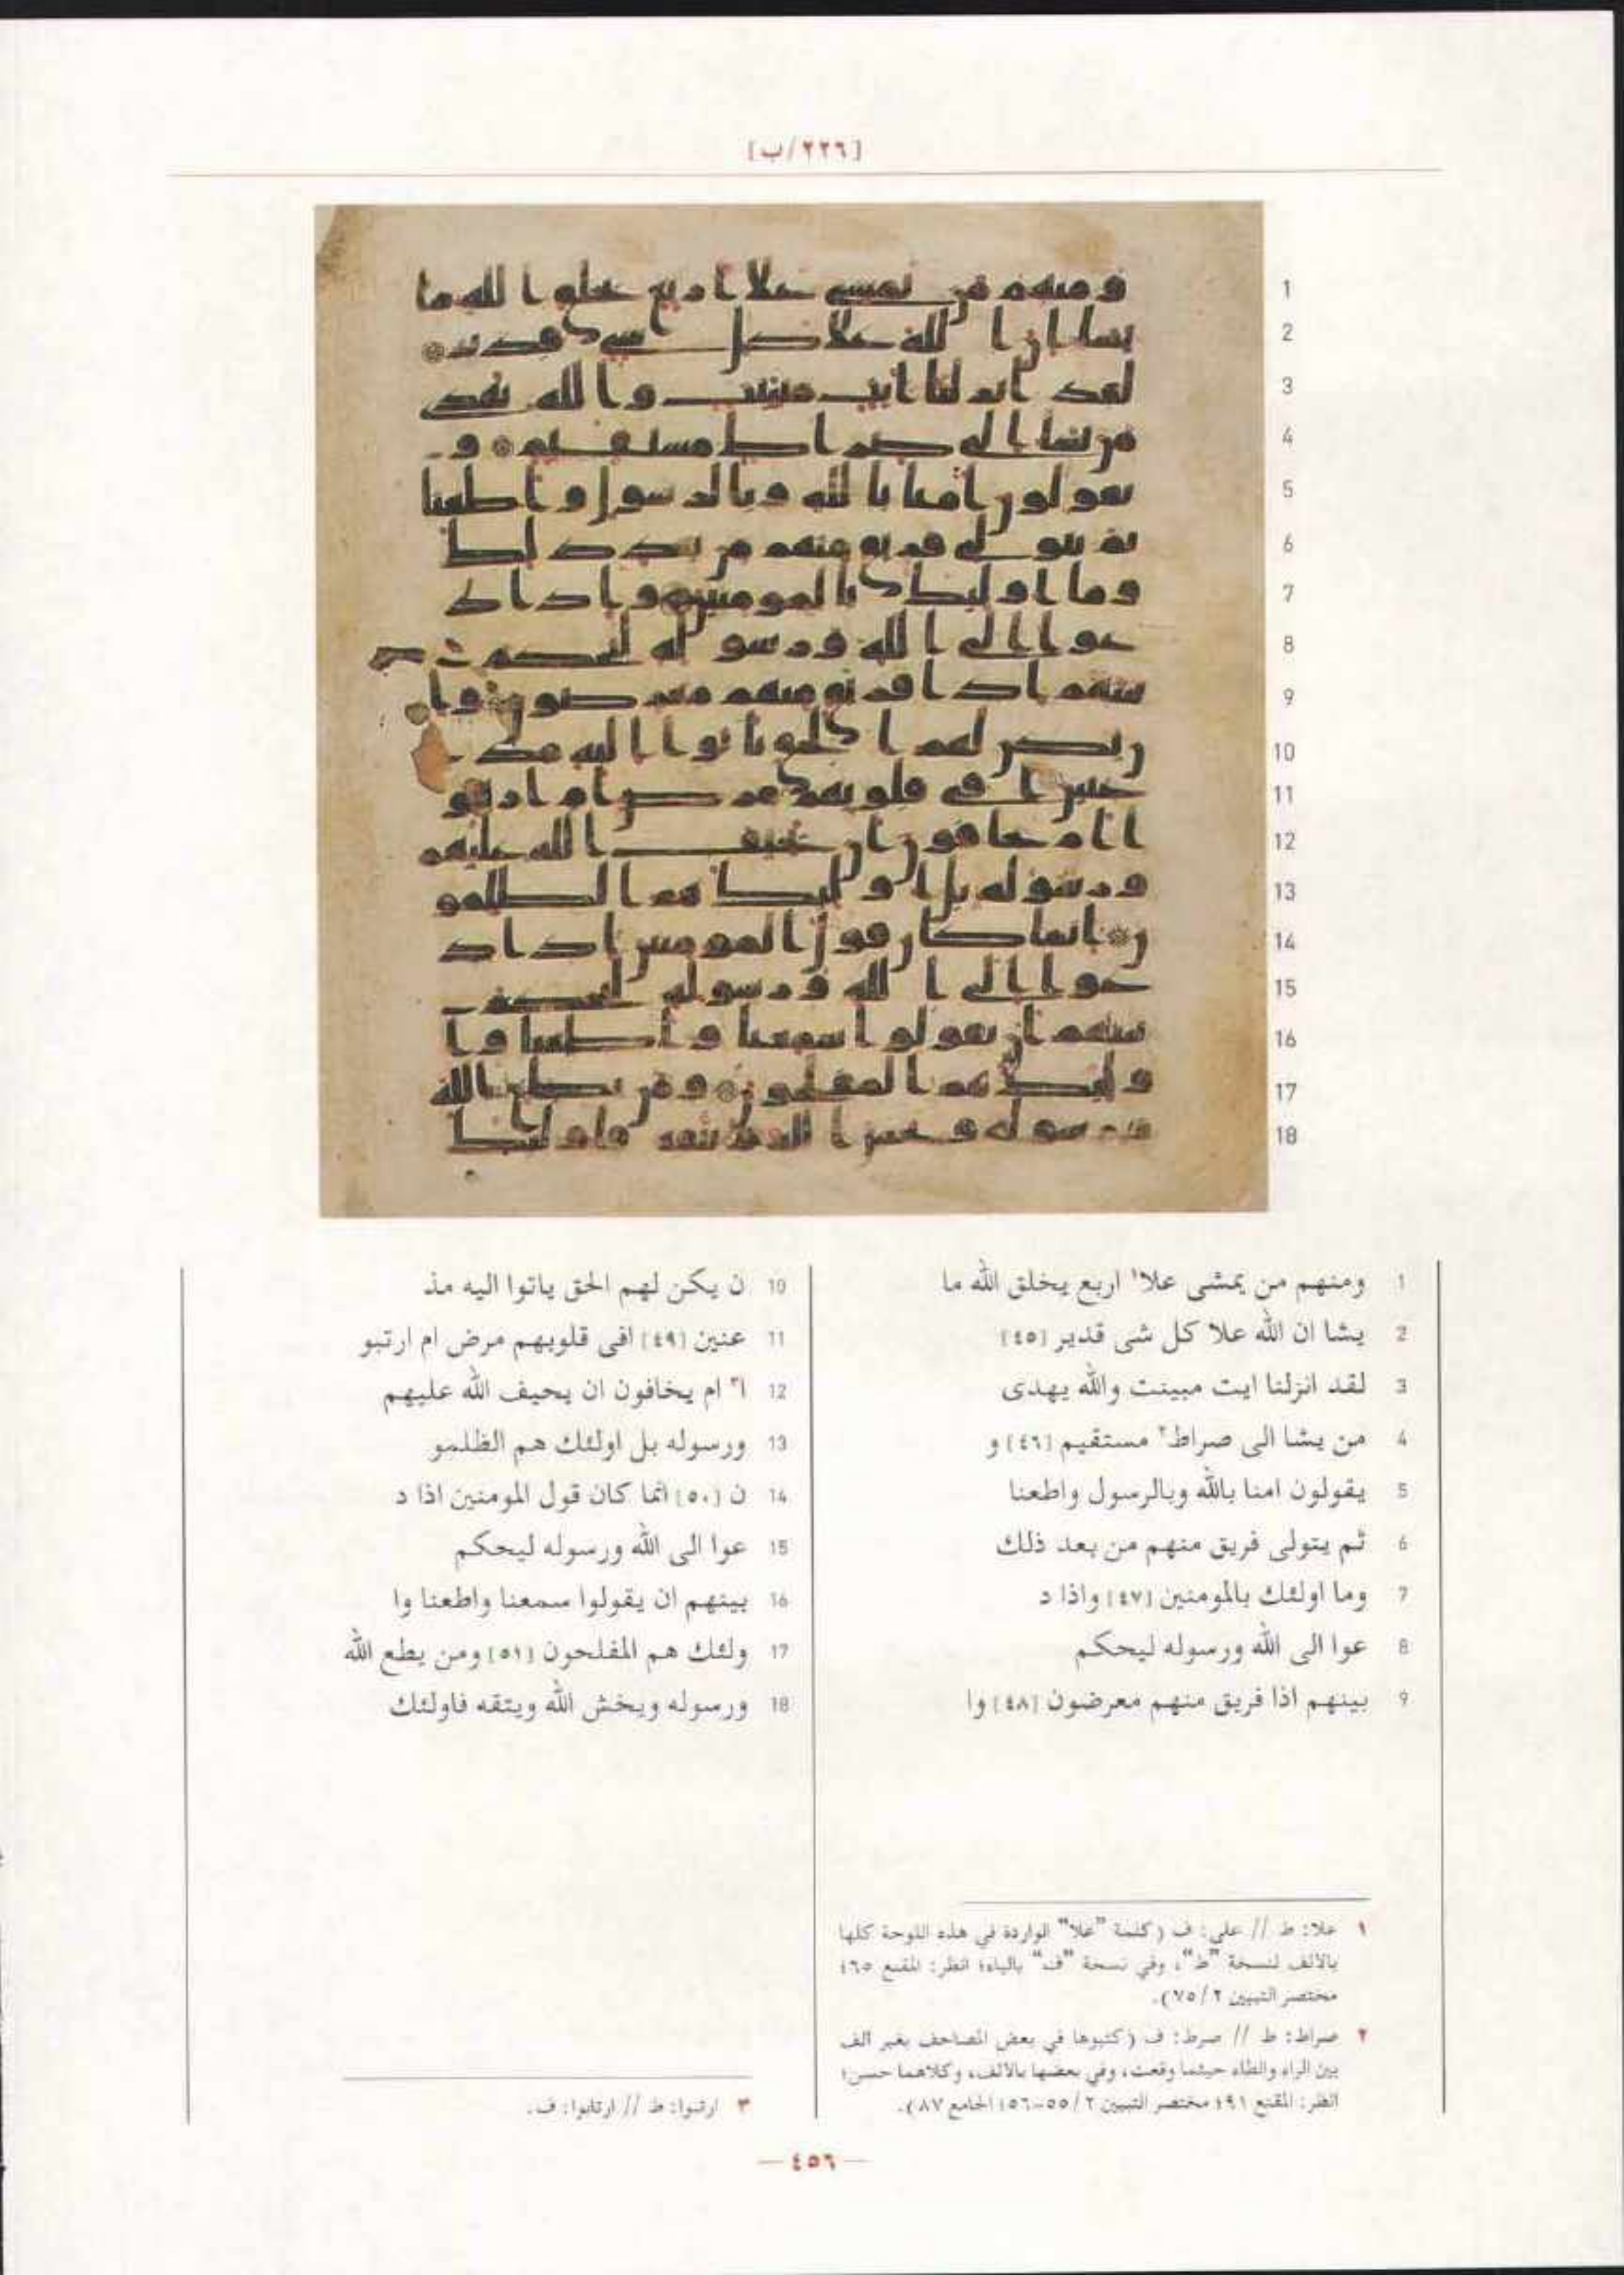 [٢٢٦/ب]
1 ومنهم من يمشى علا١ اربع يخلق الله ما
2 يشا ان الله علا كل شى قدير [٤٥]
3 لقد انزلنا ايت مبينت والله يهدى
4 من يشا الى صراط٢ مستقيم [٤٦] و
5 يقولون امنا بالله وبالرسول واطعنا
6 ثم يتولى فريق منهم من بعد ذلك
7 وما اولئك بالمومنين [٤٧] واذا د
8 عوا الى الله ورسوله ليحكم
9 بينهم اذا فريق منهم معرضون [٤٨] وا
10 ن يكن لهم الحق ياتوا اليه مذ
11 عنين [٤٩] افى قلوبهم مرض ام ارتبو
12 ا٣ ام يخافون ان يحيف الله عليهم
13 ورسوله بل اولئك هم الظلمو
14 ن [٥٠] انما كان قول المومنين اذا د
15 عوا الى الله ورسوله ليحكم
16 بينهم ان يقولوا سمعنا واطعنا وا
17 ولئك هم المفلحون [٥١] ومن يطع الله
18 ورسوله ويخش الله ويتقه فاولئك
١ علا: ط // على: ف (كلمة "علا" الواردة في هذه اللوحة كلها
بالالف لنسخة "ط"، وفي نسخة "ف" بالياء؛ انظر: المقنع ٤٦٥
مختصر التبيين ٢/٧٥).
٢ صراط: ط // صرط: ف (كتبوها في بعض المصاحف بغير الف
بين الراء والطاء حيثما وقعت، وفي بعضها بالالف، وكلاهما حسن؛
انظر: المقنع ١٩١؛ مختصر التبيين ٢/٥٥-٥٦؛ الجامع ٨٧).
٣ ارتبوا: ط // ارتابوا: ف.
— ٤٥٦ —